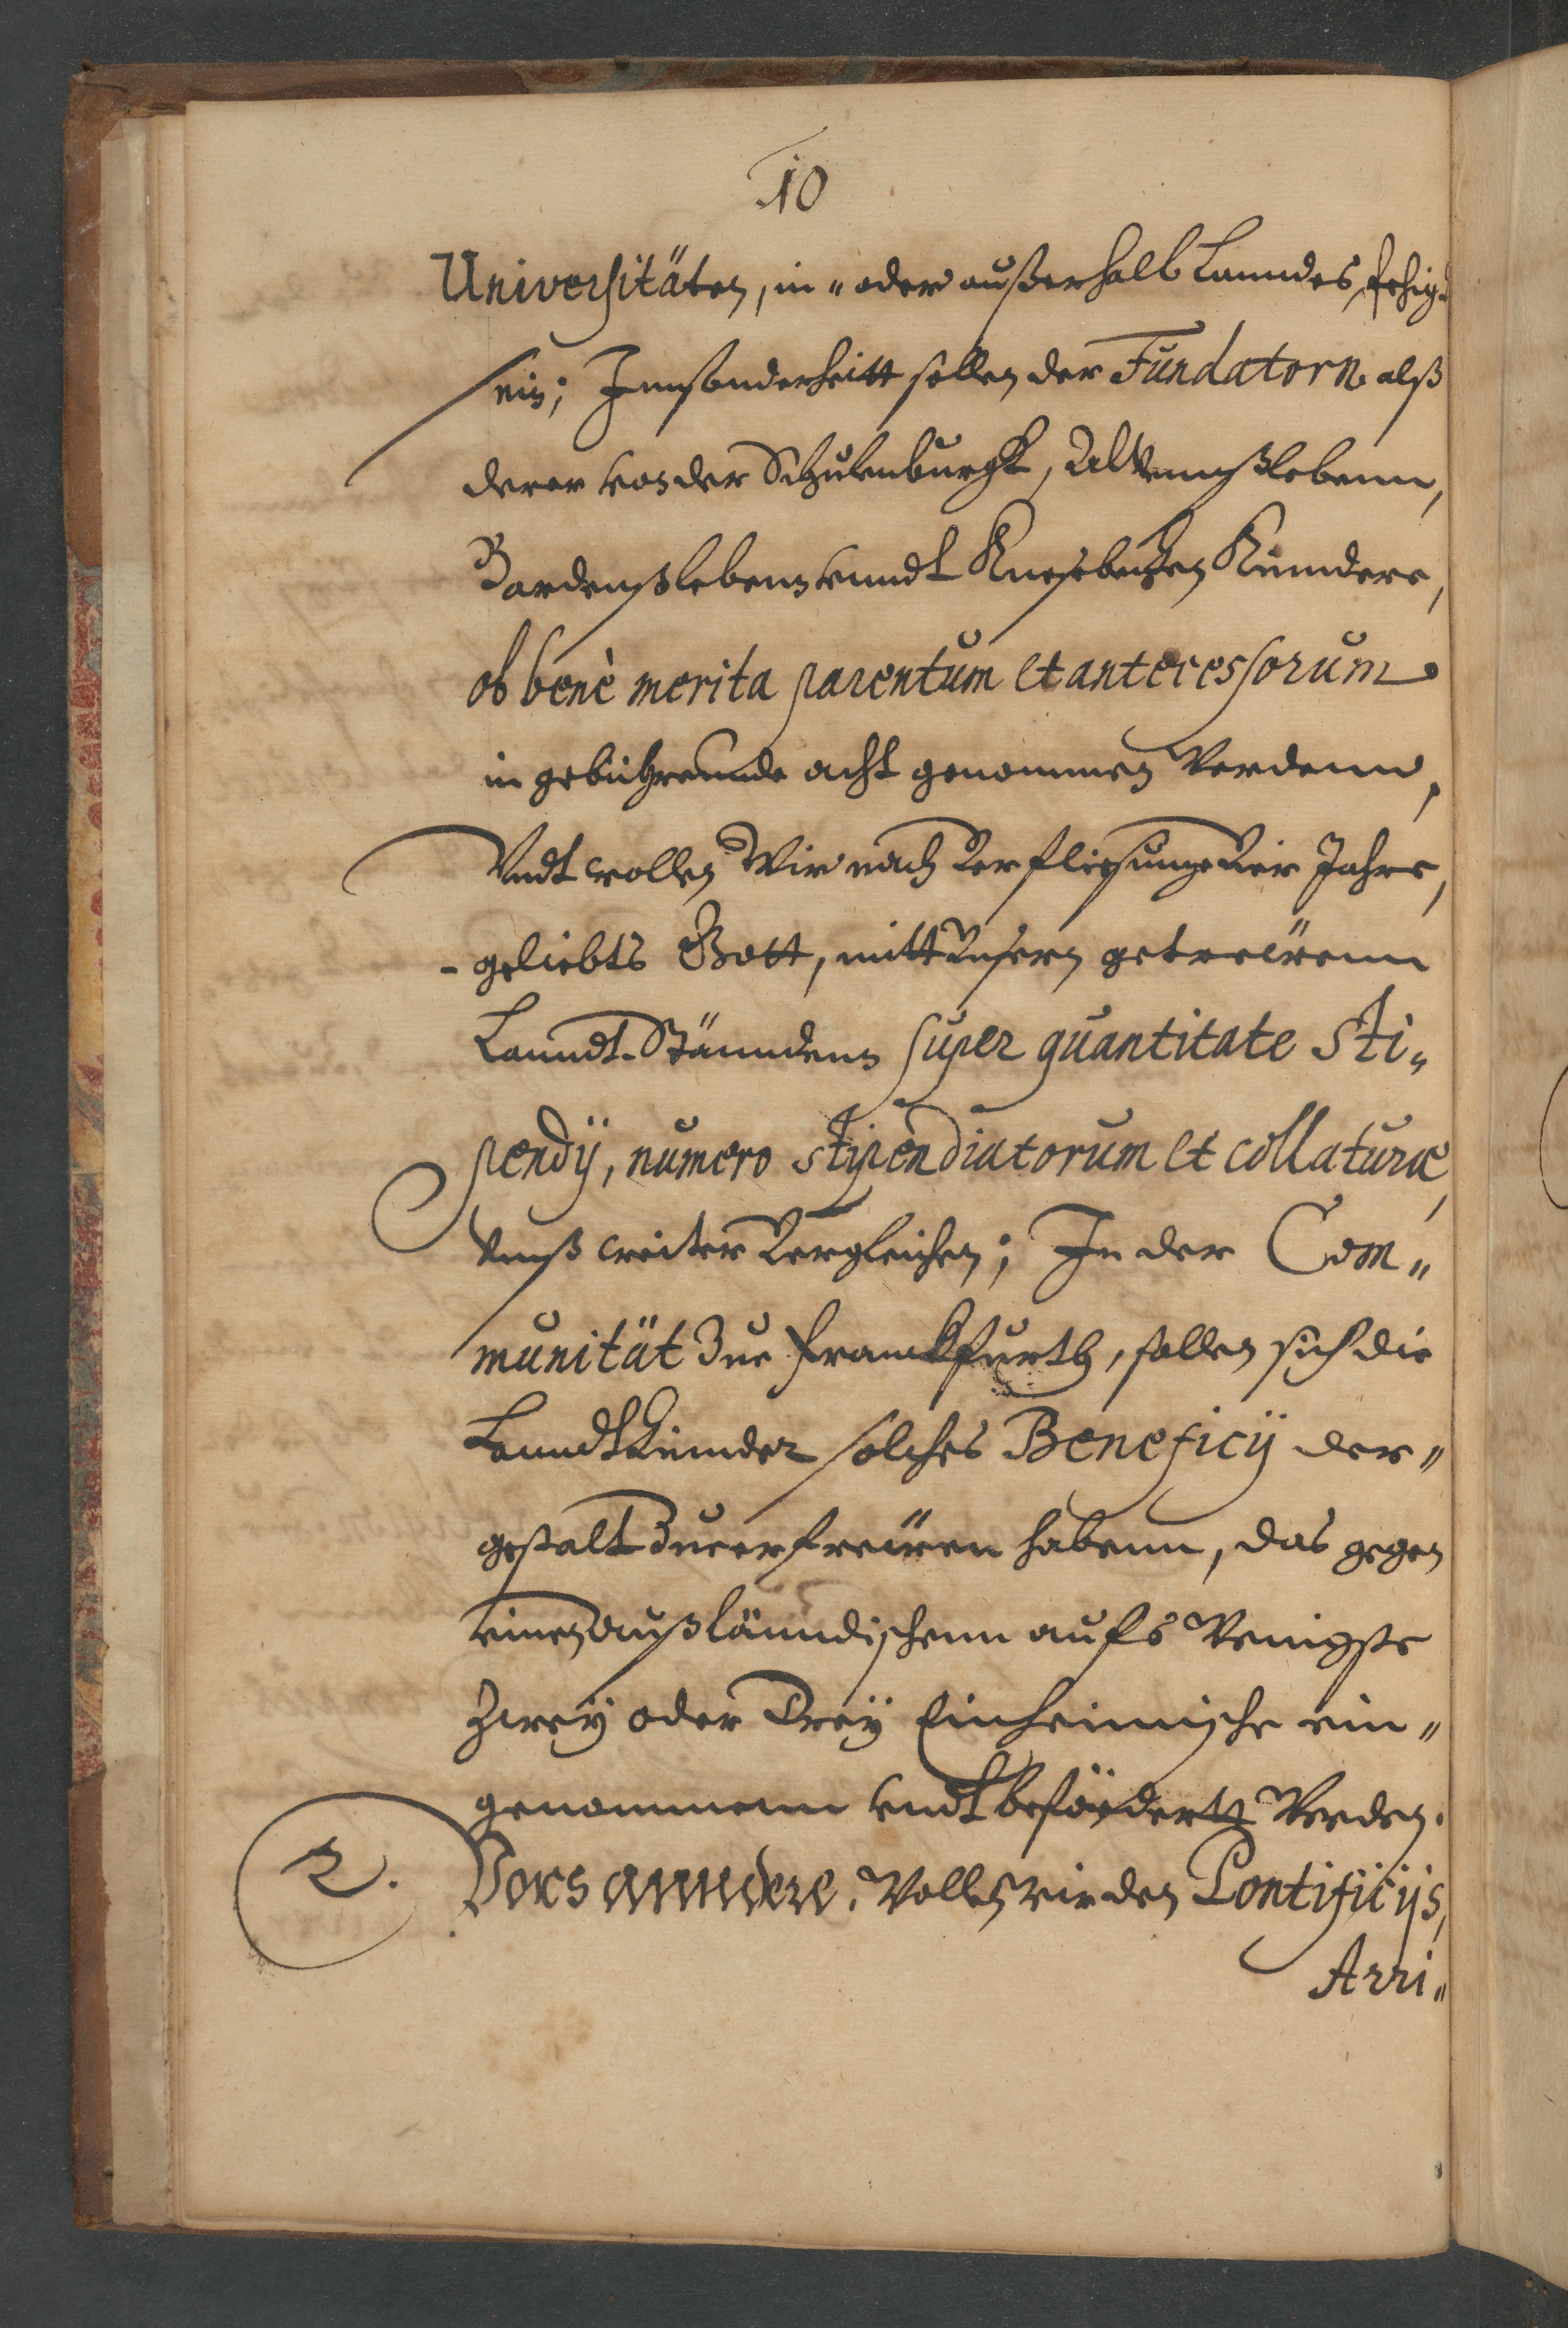 10
Universitäten, in- oder außerhalb Lanndes, fehig
sein; Innsonderheitt sollen der Fundatorn alß
derer von der Schulenburgk, Alvennßlebenn,
Bardenßlebenn vnndt Knesebecken Kinndere,
ob benè merita parentum et antecessorum
in gebührennde acht genommen Werdenn,
Vndt wollen Wir nach Verfliesunge Vier Jahre,
geliebts Gott, mitt Vnsern getrewenn
Lanndt-Stänndenn super quantitate Sti-
pendÿ, numero stipendiatorum et collaturæ,
Vnß weiter Vergleichen; In der Com-
munität Zue Franckfurth, sollen sich die
Lanndt Kinnder solches Beneficÿ der-
gestalt Zue erfrewen habenn, das gegen
einen außlänndischenn aufs Wenigste
Zweÿ oder Dreÿ Einheimische ein-
genommenn vndt befördertt Werden.
2. Vors anndere. Wollen wir den Pontificÿs,
Arri-